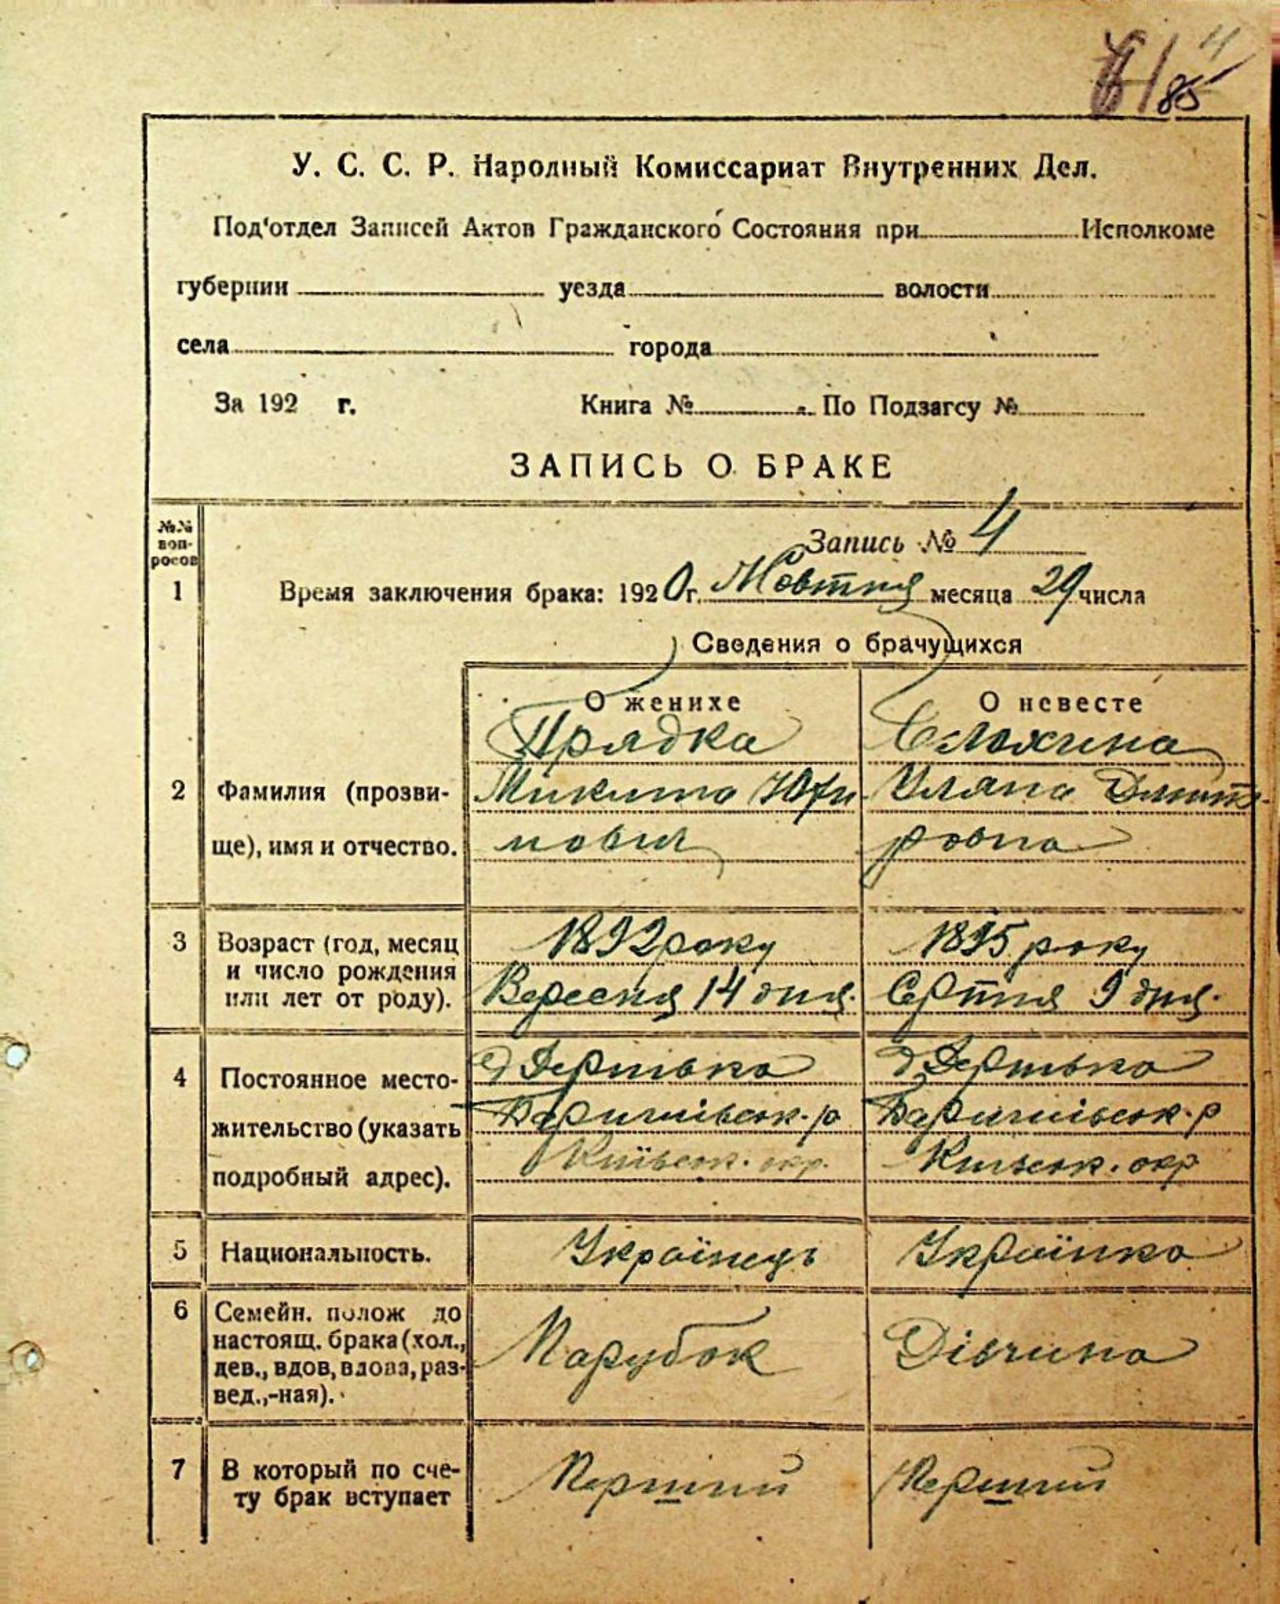 4
85
У. С. С. Р. Народный Комиссариат Внутренних Дел.
Под'отдел Записей Актов Гражданского Состояния при Исполкоме
губернии уезда волости
села города
За 192 г. Книга № По Подзагсу №
ЗАПИСЬ О БРАКЕ
№.№ воп-росов
Запись № 4
1 Время заключения брака: 1920 г. Жовтня месяца 29 числа
Сведения о брачущихся
О женихе О невесте
Прядка
2 Фамилия (прозви- Микита Юхи Уляна Дмит
ще), имя и отчество. мович ровна
3 Возраст (год, месяц 1892 року 1895 року
и число рождения Вересня 14 дня. Серпня 9 дня.
или лет от роду).
4 Постоянное место-
жительство (указать Баришівськ. р Баришівськ. р
подробный адрес). Київськ. окр. Київськ. окр
5 Национальность. Українець Українка
6 Семейн. полож до
настоящ. брака (хол., Парубок Дівчина
дев., вдов, вдова, раз-
вед.,-ная).
7 В который по сче- Перший Перший
ту брак вступает